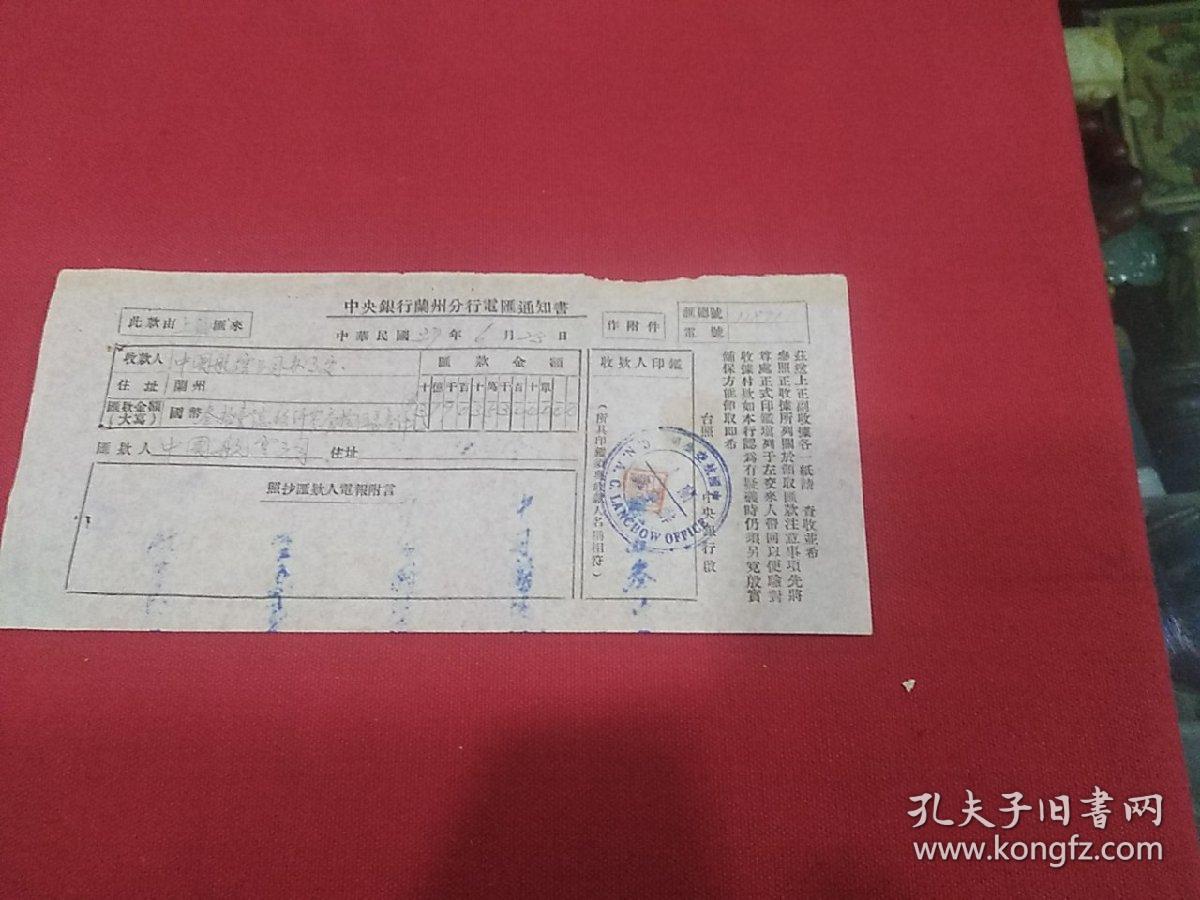 中央銀行蘭州分行電匯通知書
此款由上海匯來
中華民國37年6月28日
作附件
匯總號
電號
收款人 中國航空公司
匯款金額
住址 蘭州
十億千百十萬千百十單
匯款金額(大寫) 國幣
匯款人 中國航空公司 住址
照抄匯款人電報附言
收款人印鑑
(所具印鑑須與收款人名稱相符)
茲送上正副收據各一紙請 查收並希
參照正收據所列關於領取匯款注意事項先將
尊處正式印鑑填列于左交來人帶回以便驗對
收據付款如本行認為有疑義時仍須另覓殷實
舖保方能領取即希
台照 中央銀行啟
C.N.A.C. LANCHOW OFFICE
孔夫子旧书网
www.kongfz.com